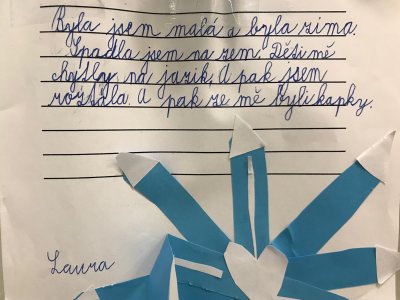 Byla jsem malá a byla zima.
Spadla jsem na zem. Děti mě
chytly na jazik. A pak jsem
roztála. A pak ze mě byli kapky.
Laura